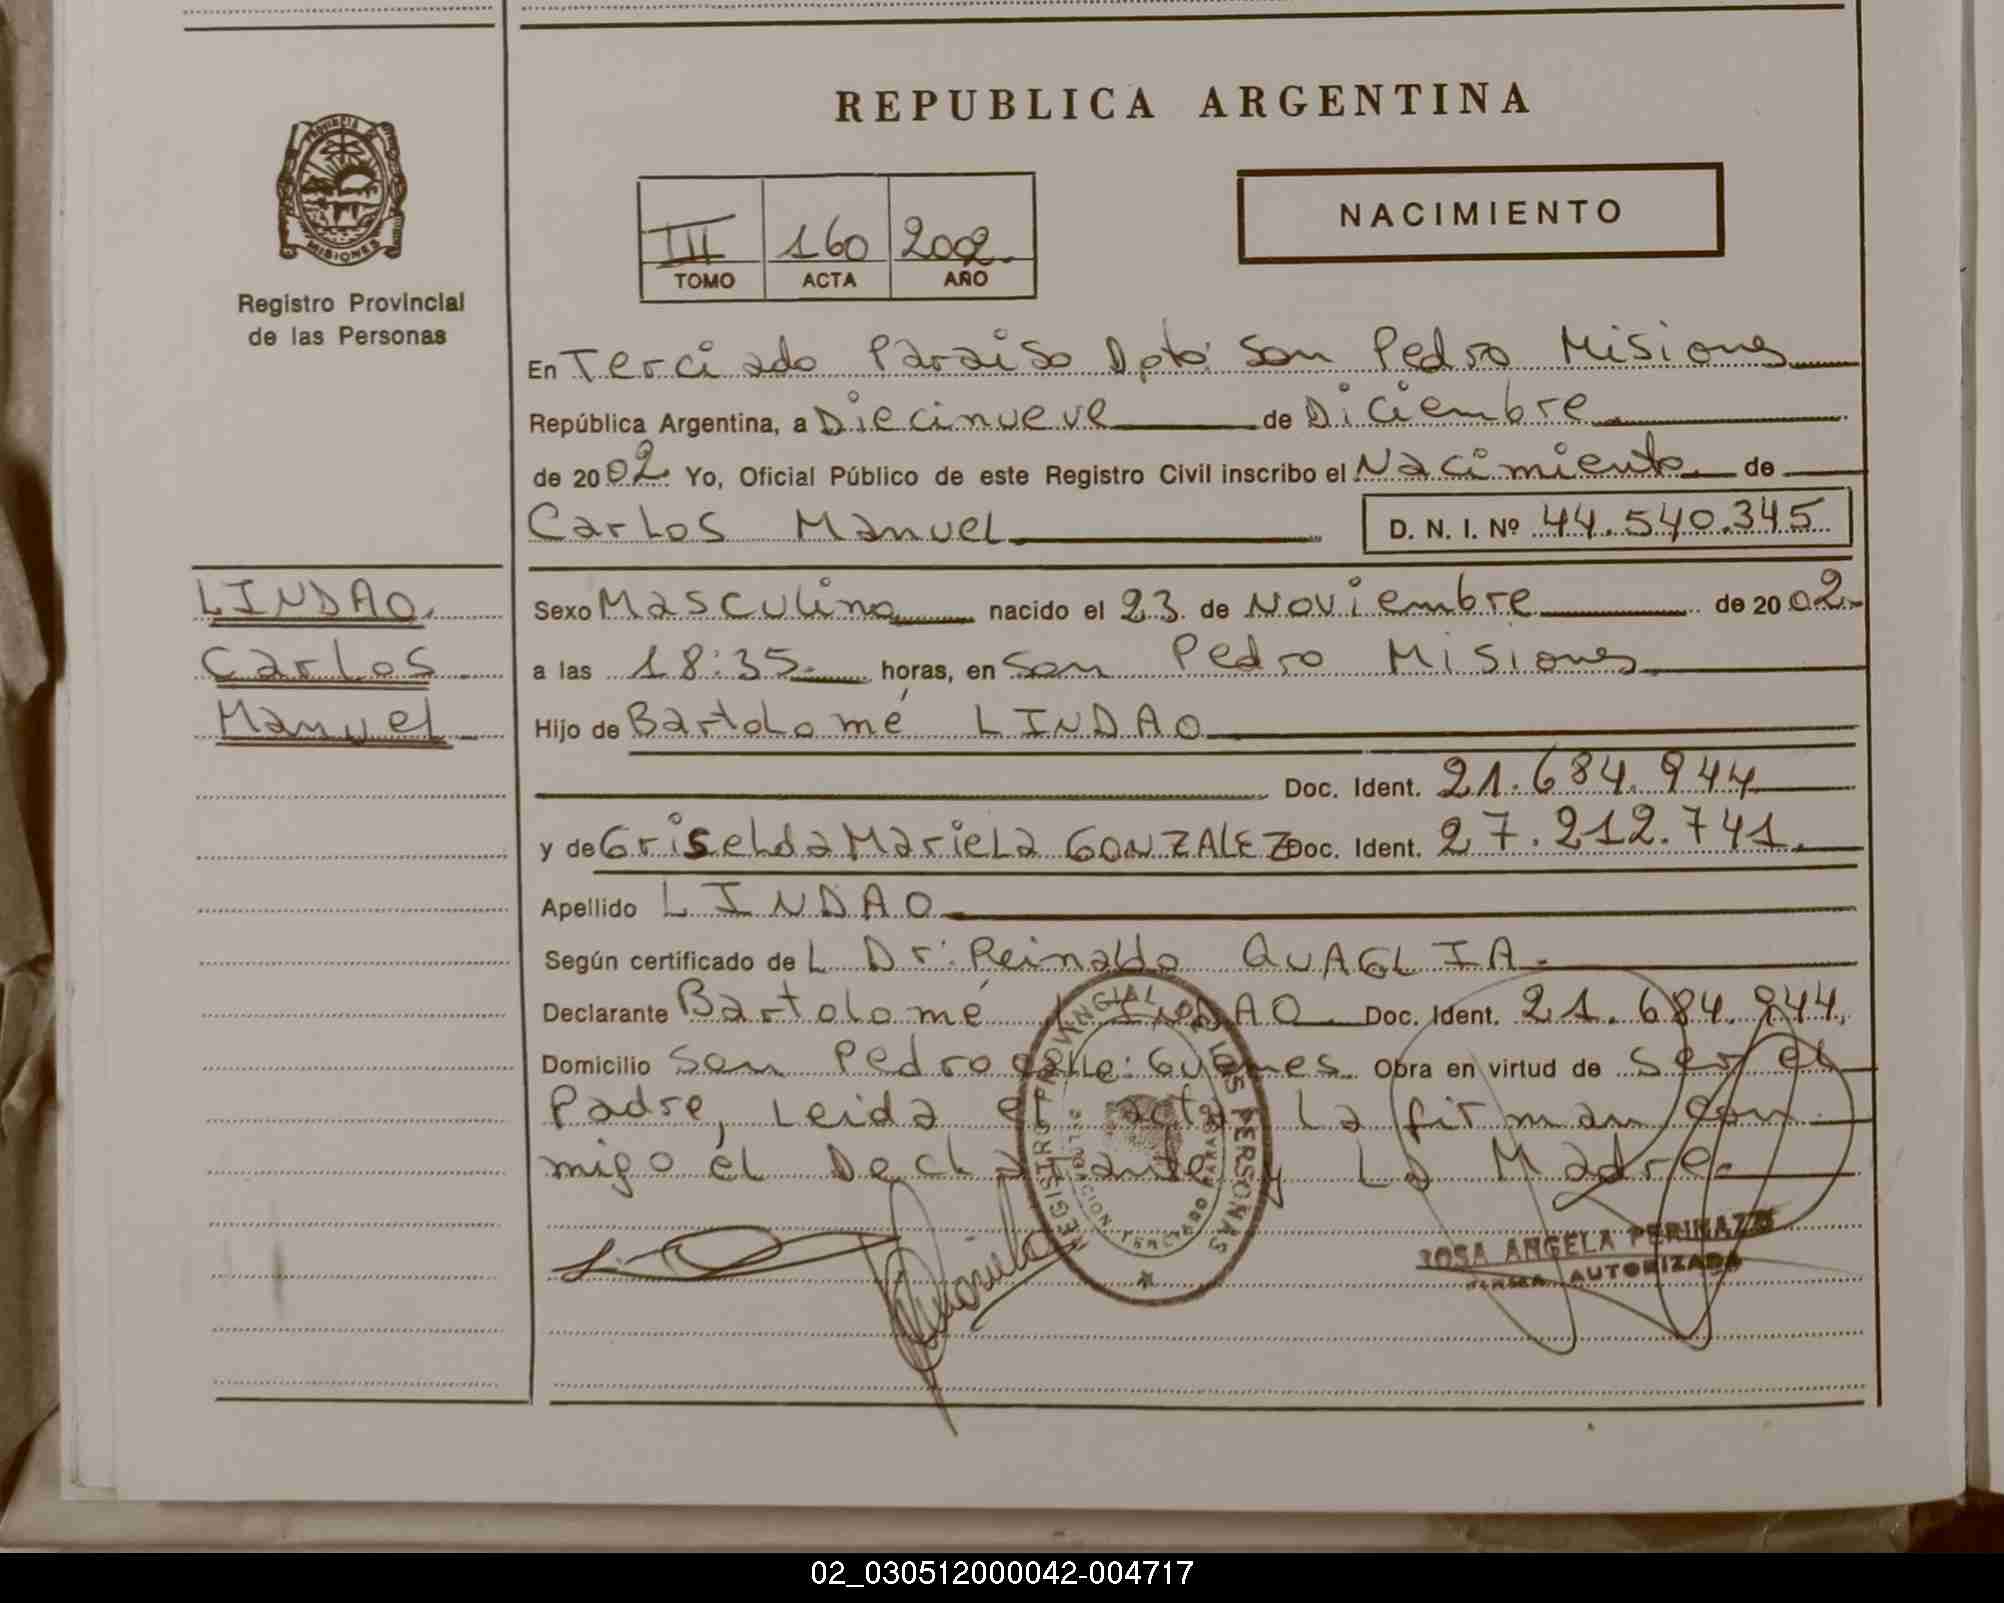 REPUBLICA ARGENTINA
PROVINCIA DE
MISIONES
Registro Provincial
de las Personas
III 160 2002
TOMO ACTA AÑO
NACIMIENTO
En Terciado Paraiso Dpto: San Pedro Misiones
República Argentina, a Diecinueve de Diciembre
de 2002 Yo, Oficial Público de este Registro Civil inscribo el Nacimiento de
Carlos Manuel D. N. I. Nº 44.540.345
LINDAO
Carlos
Manuel
Sexo Masculino nacido el 23 de Noviembre de 2002
a las 18:35 horas, en San Pedro Misiones
Hijo de Bartolomé LINDAO
Doc. Ident. 21.684.944
y de Griselda Mariela GONZALEZ Doc. Ident. 27.212.741.
Apellido LINDAO
Según certificado de L Dr: Reinaldo QUAGLIA.
Declarante Bartolomé LINDAO Doc. Ident. 21.684.944,
Domicilio San Pedro calle: Guemes. Obra en virtud de ser el
Padre, Leida el acta La firman con
migo el Declarante y La Madre.
REGISTRO PROVINCIAL DE LAS PERSONAS
DELEGACION TERCIADO PARAISO
ROSA ANGELA PERINAZZO
AUTORIZADA
02_030512000042-004717